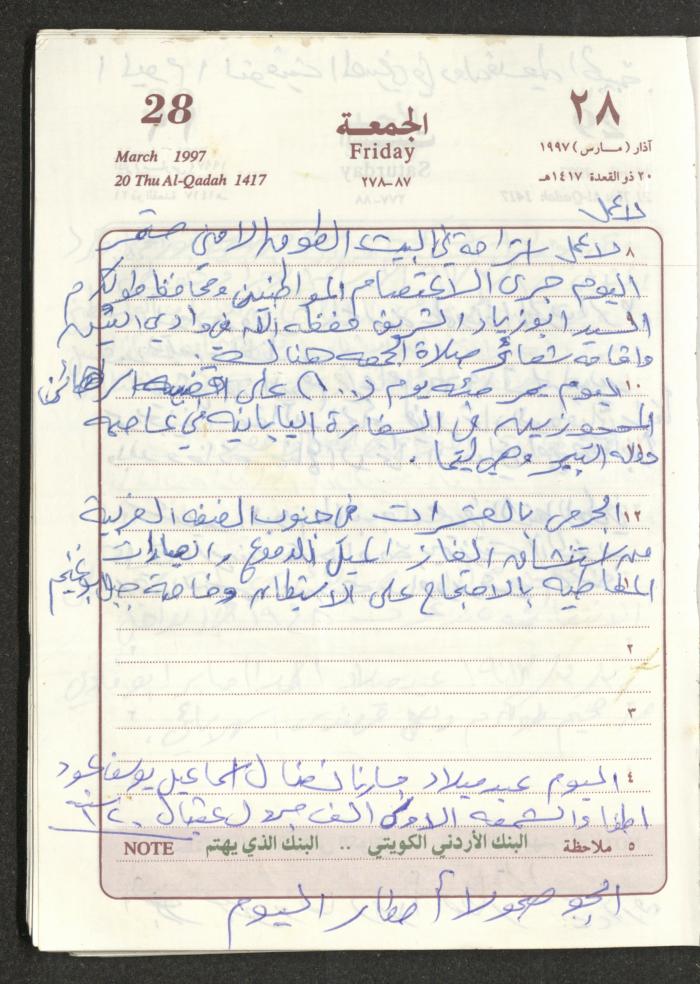 28
March 1997
20 Thu Al-Qadah 1417
الجمعة
Friday
٨٧-٢٧٨
٢٨
آذار (مارس) ١٩٩٧
٢٠ ذو القعدة ١٤١٧هـ
لا عمل
٨ لا عمل استراحة في البيت الطوق الامني مستمر
اليوم جرى الاعتصام المواطنين ومحافظ طولكرم
٩ السيد ابو زياد الشريف حفظه الله في وادي التين
واقامة شعائر صلاة الجمعه هنالك
١٠ اليوم يمر مئه يوم (١٠٠) على قضية الرهائن
المحجوزين في السفارة اليابانيه في عاصمه
دوله البيرو وهي ليما.
١٢ الجرحى بالعشرات في جنوب الضفه الغربية
من استنشاق الغاز المسيل للدموع والعيارات
١ المطاطيه بالاحتجاج على الاستيطان وخاصة جبل ابو غنيم
٢
٣
٤ اليوم عيد ميلاد جارنا نضال اسماعيل يوسف
اطفا والشمعه الاولى الف مبروك عقبال ١٢٠ سنه
٥ ملاحظة
البنك الأردني الكويتي .. البنك الذي يهتم
NOTE
الجو أمطار اليوم